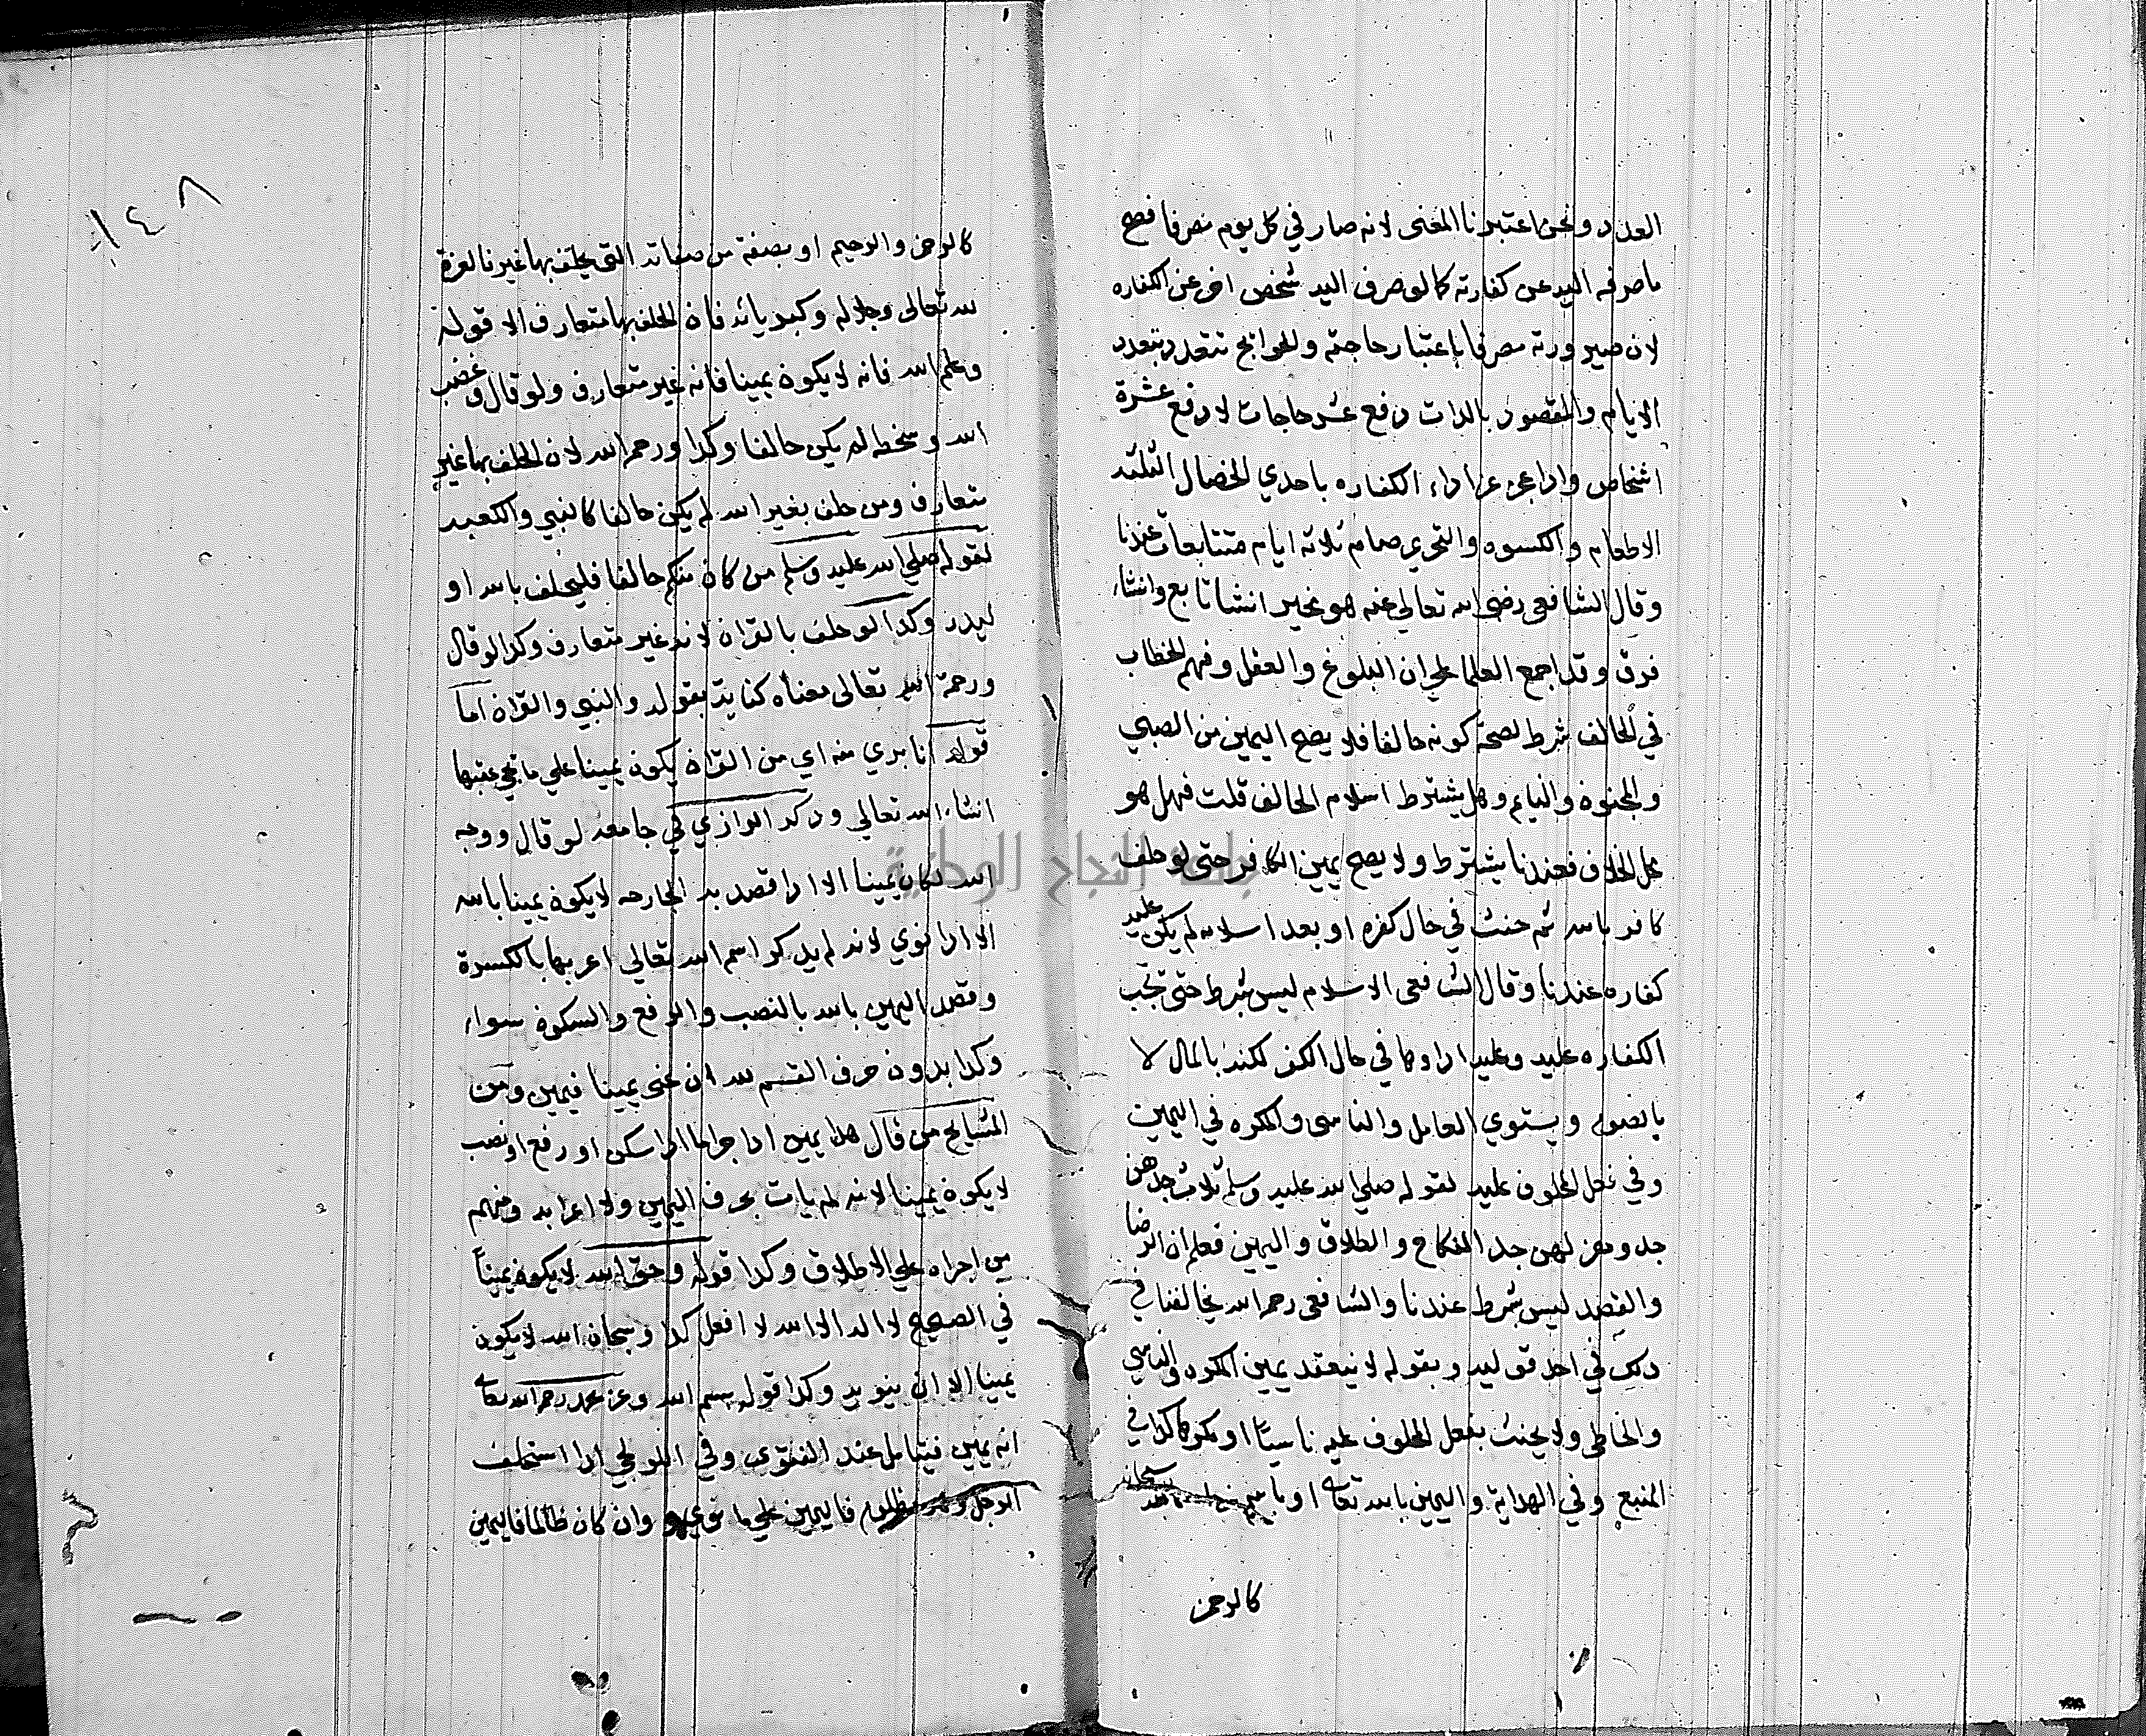 العدد ونحن اعتبرنا المعنى لانه صار في كل يوم مصرفا فصح
ما صرفه اليه عن كفارته كما لو صرف اليه شخص اخر عن الكفاره
لان صيرورته مصرفا باعتبار حاجته والحوايج تتعدد بتعدد
الايام والمقصود بالذات دفع عشر حاجات لا دفع عشرة
اشخاص واذا عجز عن اداء الكفاره باحدي الخصال الثلثه
الاطعام والكسوه والتحرير صام ثلاثة ايام متتابعات عندنا
وقال الشافعي رضي الله تعالي عنه هو مخير ان شا تابع وان شاء
فرق وقد اجمع العلما علي ان البلوغ والعقل وفهم الخطاب
في الحالف شرط لصحة كونه حالفا فلا يصح اليمين من الصبي
والمجنون والنايم وهل يشترط اسلام الحالف قلت فهل هو
محل الخلاف فعندنا يشترط ولا يصح يمين الكافر حتى لو حلف
كافر بالله ثم حنث في حال كفره او بعد اسلامه لم يكن عليه
كفاره عندنا وقال الشافعي الاسلام ليس بشرط حتى تجب
الكفاره عليه وعليه اداوها في حال الكفر لكنه بالمال لا
بالصوم ويستوي العامل والناسي والمكره في اليمين
وفي فعل المحلوف عليه لقوله صلي الله عليه وسلم ثلاث جدهن
جد وهزلهن جد النكاح والطلاق واليمين فعلم ان الرضا
والقصد ليس بشرط عندنا والشافعي رحمه الله يخالفنا في
ذلك في احد قوليه وبقوله لا ينعقد يمين المكره والناسي
والخاطي ولا يحنث بفعل المحلوف عليه ناسيا او مكرها كذا في
المنبع وفي الهداية واليمين بالله تعالى او باسم من اسمائه سبحانه
كالرحمن
١٤٨
كالرحمن والرحيم او بصفة من صفاته التي يحلف بها غيرنا لعزة
لله تعالى وجلاله وكبريائه فان الحلف بها متعارف الا قوله
وعلم الله فانه لا يكون يمينا فانه غير متعارف ولو قال وغضب
الله وسخطه لم يكن حالفا وكذا ورحمه الله لان الحلف بها غير
متعارف ومن حلف بغير الله لم يكن حالفا كالنبي والكعبه
لقوله صلي الله عليه وسلم من كان منكم حالفا فليحلف بالله او
ليذر وكذا لو حلف بالقران لانه غير متعارف وكذا لو قال
ورحمة الله تعالى معناه كناية بقوله والنبي والقران اما
قوله انا بري منه اي من القران يكون يمينا علي ما يجي عقبها
ان شاء الله تعالي وذكر الرازي في جامعه لو قال ووجه
الله لكان يمينا الا اذا قصد به الجارحه لا يكون يمينا بالله
الا اذا نوي لانه لم يذكر اسم الله تعالي اعربها بالكسرة
وقصد اليمين بالله بالنصب والرفع والسكون سواء
وكذا بدون حرف القسم لله ان عنى يمينا فيمين ومن
المشايخ من قال هذا يمين اذا جر اما اذا سكن او رفع او نصب
لا يكون يمينا لانه لم يات بحرف اليمين ولا اعرابه ومنهم
من اجراه علي الاطلاق وكذا قوله وحق الله لا يكون يمينا
في الصحيح لا اله الا الله لا افعل كذا وسبحان الله لا يكون
يمينا الا ان ينويه وكذا قوله بسم الله وعن محمد رحمه الله تعالى
انه يمين فيتامل عند الفتوى وفي الولوالجي اذا استحلف
الرجل وهو مظلوم فاليمين علي ما نوي وان كان ظالما فاليمين